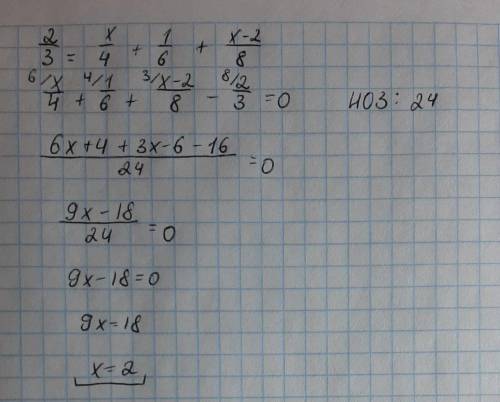 2/3 = x/4 + 1/6 + x-2/8
6/x/4 + 4/1/6 + 3/x-2/8 - 8/2/3 = 0 НОЗ: 24
6x+4+3x-6-16/24 = 0
9x-18/24 = 0
9x-18=0
9x=18
x=2